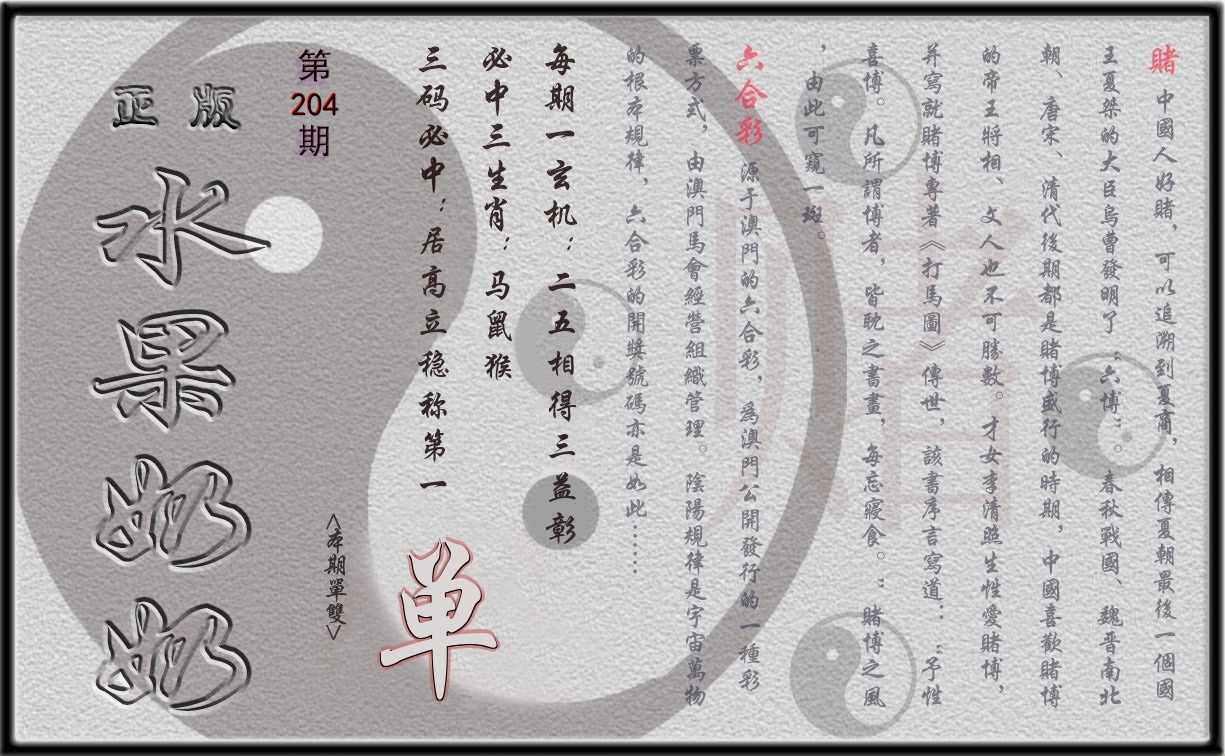 賭 中國人好賭，可以追溯到夏商，相傳夏朝最後一個國
王夏桀的大臣烏曹發明了“六博”。春秋戰國、魏晋南北
朝、唐宋、清代後期都是賭博盛行的時期，中國喜歡賭博
的帝王將相、文人也不可勝數。才女李清照生性愛賭博，
并寫就賭博專著《打馬圖》傳世，該書序言寫道：“予性
喜博。凡所謂博者，皆耽之書畫，每忘寢食。：賭博之風
，由此可窺一斑。
六合彩 源于澳門的六合彩，爲澳門公開發行的一種彩
票方式，由澳門馬會經營組織管理。陰陽規律是宇宙萬物
的根本規律，六合彩的開獎號碼亦是如此……
每期一玄机：二五相得三益彰
必中三生肖：马鼠猴
三码必中：居高立稳称第一
单
<本期單雙>
第
204
期
正版
水果奶奶
賭